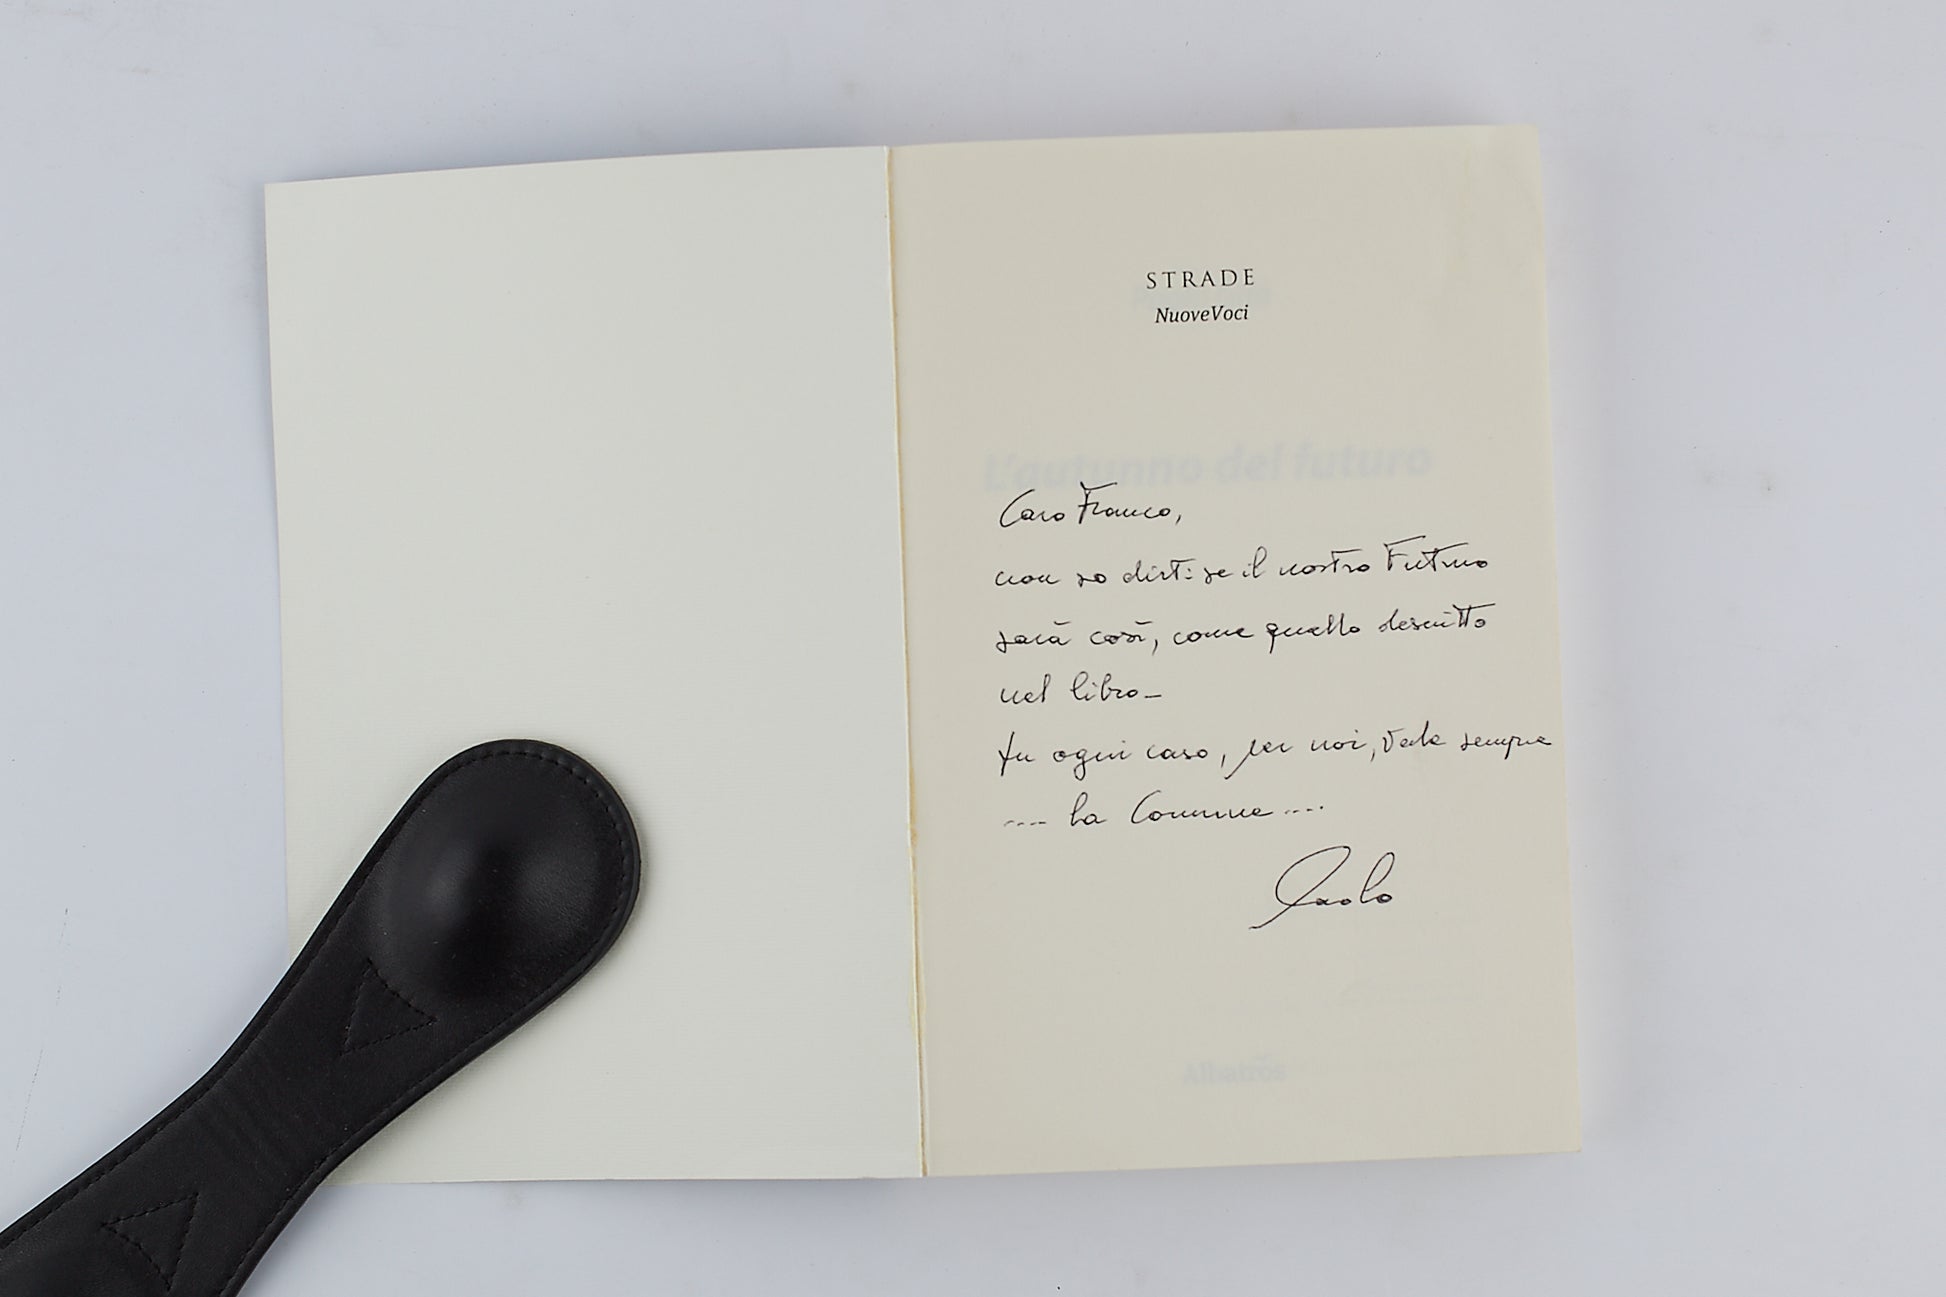 STRADE
NuoveVoci
L'autunno del futuro
Caro Franco,
non so dirti se il nostro Futuro
sarà così, come quello descritto
nel libro-
In ogni caso, per noi, vale sempre
---- La Comune ----
Paolo
Albatros